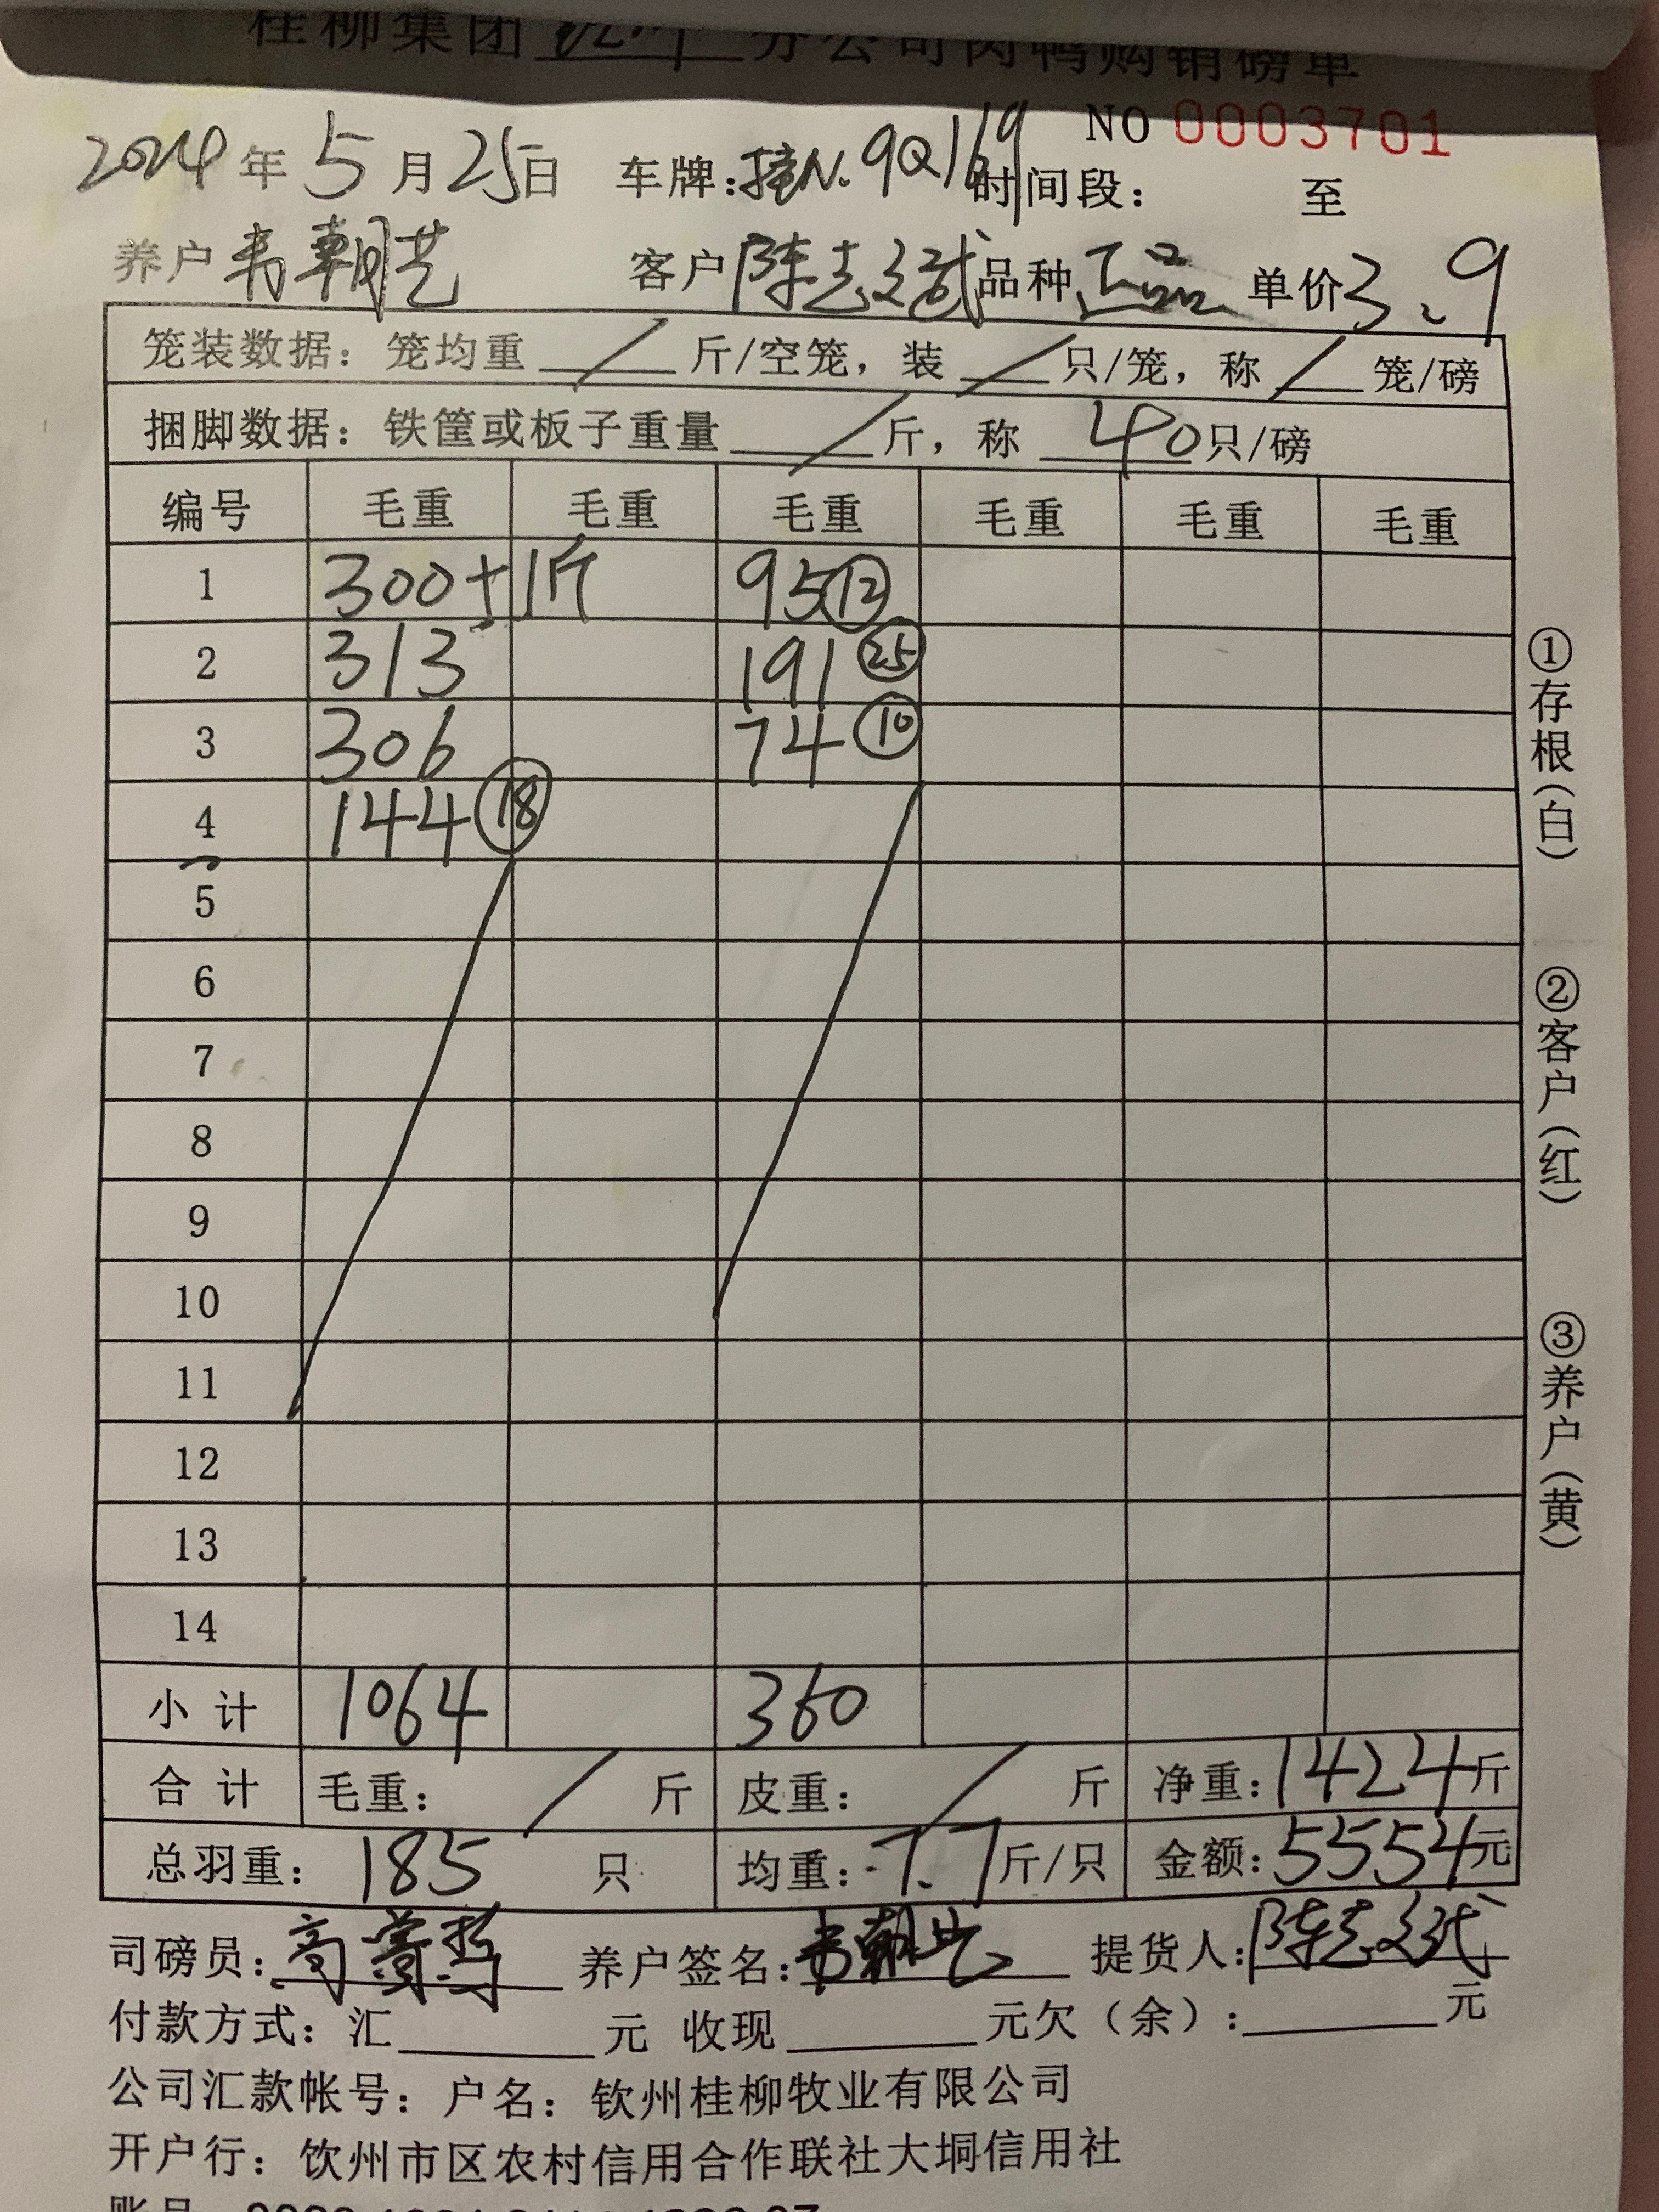 桂柳集团 钦州 分公司肉鸭购销磅单
NO 0003701
2024年5月25日 车牌:桂N.9Q169 时间段: 至
养户 韦朝艺 客户 陈志斌 品种 正品 单价 3.9
笼装数据:笼均重 / 斤/空笼,装 / 只/笼,称 / 笼/磅
捆脚数据:铁筐或板子重量 / 斤,称 40 只/磅
编号 毛重 毛重 毛重 毛重 毛重 毛重
1 300+1斤 95 ⑫
2 313 191 ㉕
3 306 74 ⑩
4 144 ⑱
5
6
7
8
9
10
11
12
13
14
小计 1064 360
合计 毛重: / 斤 皮重: / 斤 净重:1424斤
总羽重: 185 只 均重:7.7斤/只 金额:5554元
司磅员:高 养户签名:韦朝艺 提货人:陈志斌
付款方式:汇 元 收现 元欠(余): 元
公司汇款帐号:户名:钦州桂柳牧业有限公司
开户行:钦州市区农村信用合作联社大垌信用社
①存根(白)
②客户(红)
③养户(黄)